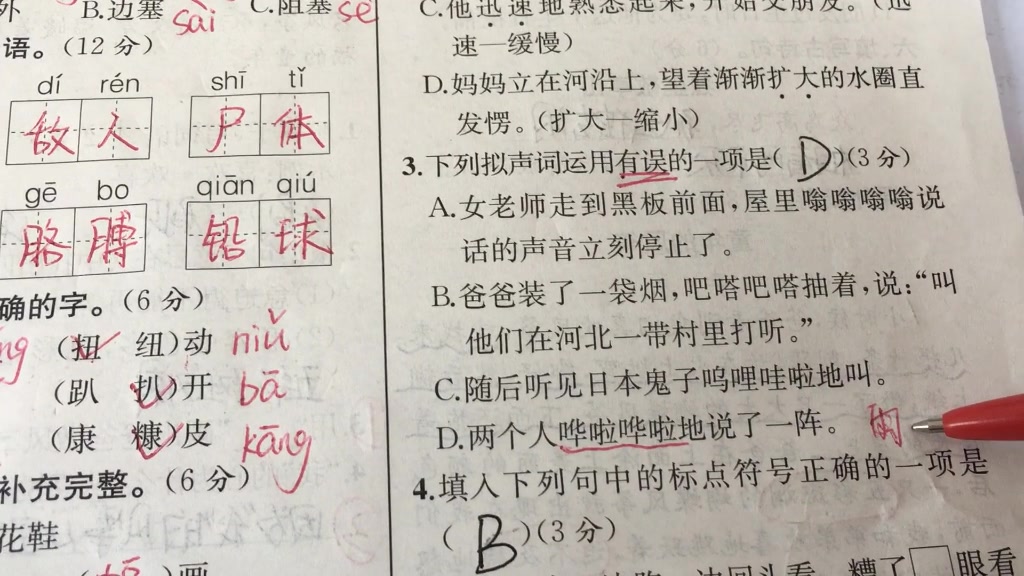 外 B.边塞 sāi C.阻塞 sè
语。(12分)
dí rén shī tǐ
敌人 尸体
gē bo qiān qiú
胳膊 铅球
确的字。(6分)
(扭 纽)动 niǔ
(趴 扒)开 bā
(康 糠)皮 kāng
补充完整。(6分)
花鞋
C.他迅速地熟悉起来,开始交朋友。(迅
速—缓慢)
D.妈妈立在河沿上,望着渐渐扩大的水圈直
发愣。(扩大—缩小)
3.下列拟声词运用有误的一项是(D)(3分)
A.女老师走到黑板前面,屋里嗡嗡嗡嗡说
话的声音立刻停止了。
B.爸爸装了一袋烟,吧嗒吧嗒抽着,说:“叫
他们在河北一带村里打听。”
C.随后听见日本鬼子呜哩哇啦地叫。
D.两个人哗啦哗啦地说了一阵。
4.填入下列句中的标点符号正确的一项是
(B)(3分)